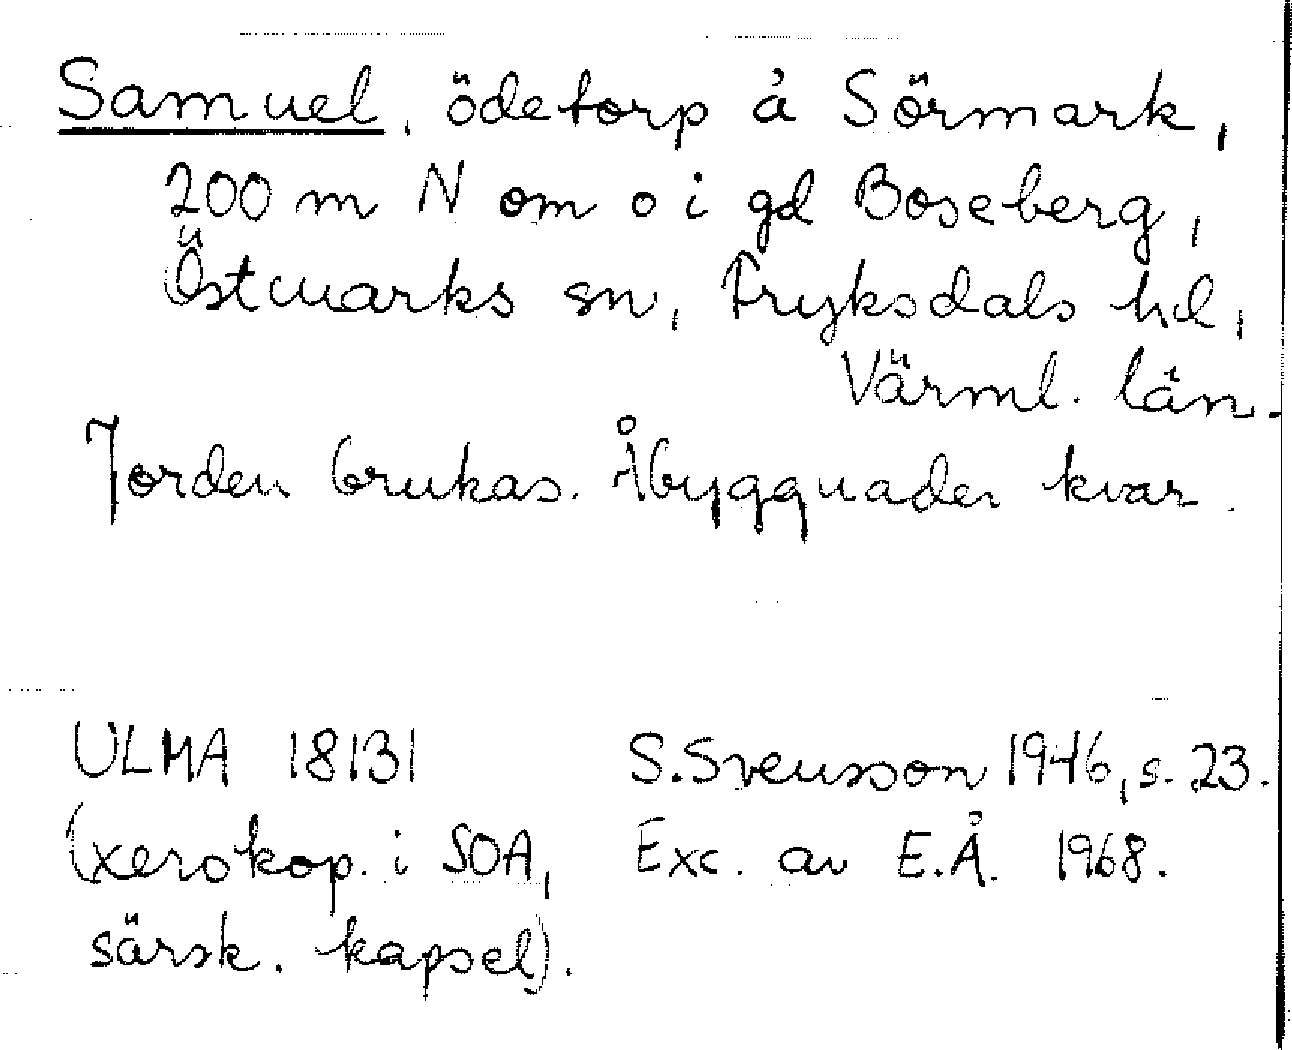 Samuel, ödetorp å Sörmark,
200 m N om o i gd Boseberg,
Östmarks sn, Fryksdals hd,
Värml. län.
Jorden brukas. Åbyggnader kvar.
ULMA 18131
(xerokop. i SOA,
särsk. kapsel).
S. Svensson 1946, s. 23.
Exc. av E.Å. 1968.